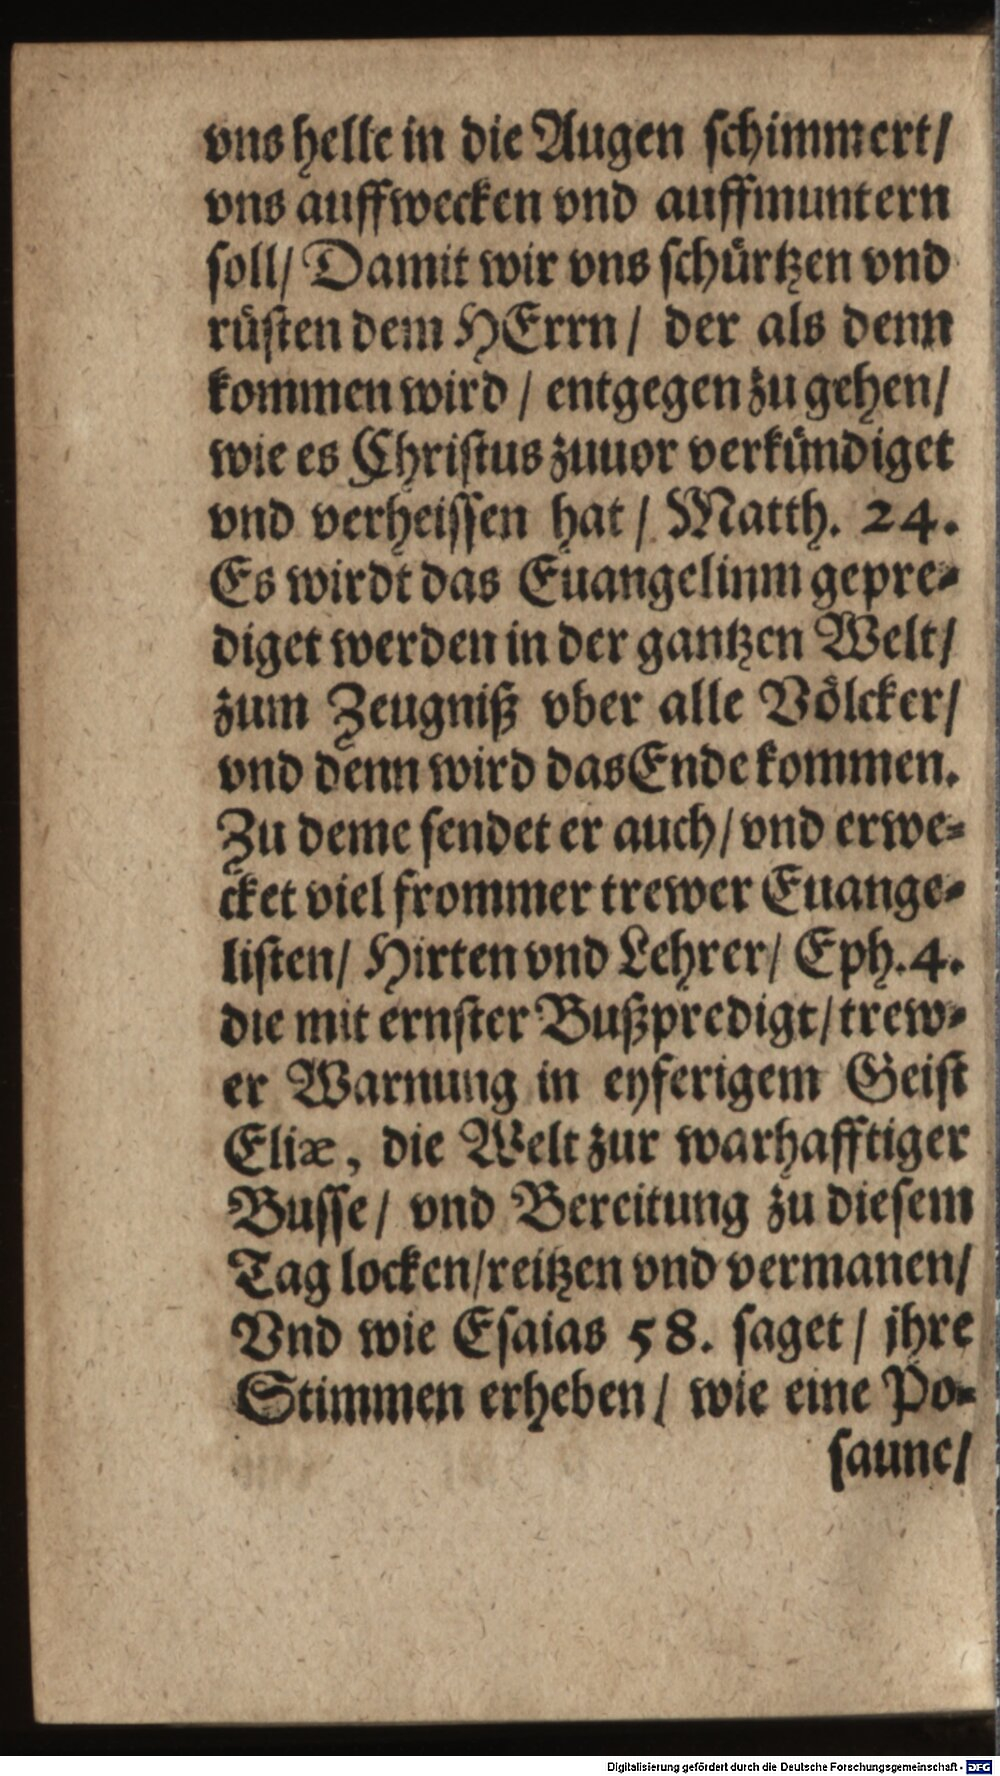 vns helle in die Augen schimmert/
vns auffwecken vnd auffmuntern
soll/ Damit wir vns schürtzen vnd
rüsten dem HErrn/ der als denn
kommen wird/ entgegen zu gehen/
wie es Christus zuuor verkündiget
vnd verheissen hat/ Matth. 24.
Es wirdt das Euangelinm gepre-
diget werden in der gantzen Welt/
zum Zeugniß vber alle Völcker/
vnd denn wird das Ende kommen.
Zu deme sendet er auch/ vnd erwe-
cket viel frommer trewer Euange-
listen/ Hirten vnd Lehrer/ Eph. 4.
die mit ernster Bußpredigt/ trew-
er Warnung in eyferigem Geist
Eliæ, die Welt zur warhafftiger
Busse/ vnd Bereitung zu diesem
Tag locken/ reitzen vnd vermanen/
Vnd wie Esaias 58. saget/ jhre
Stimmen erheben/ wie eine Po-
saune/
Digitalisierung gefördert durch die Deutsche Forschungsgemeinschaft - DFG